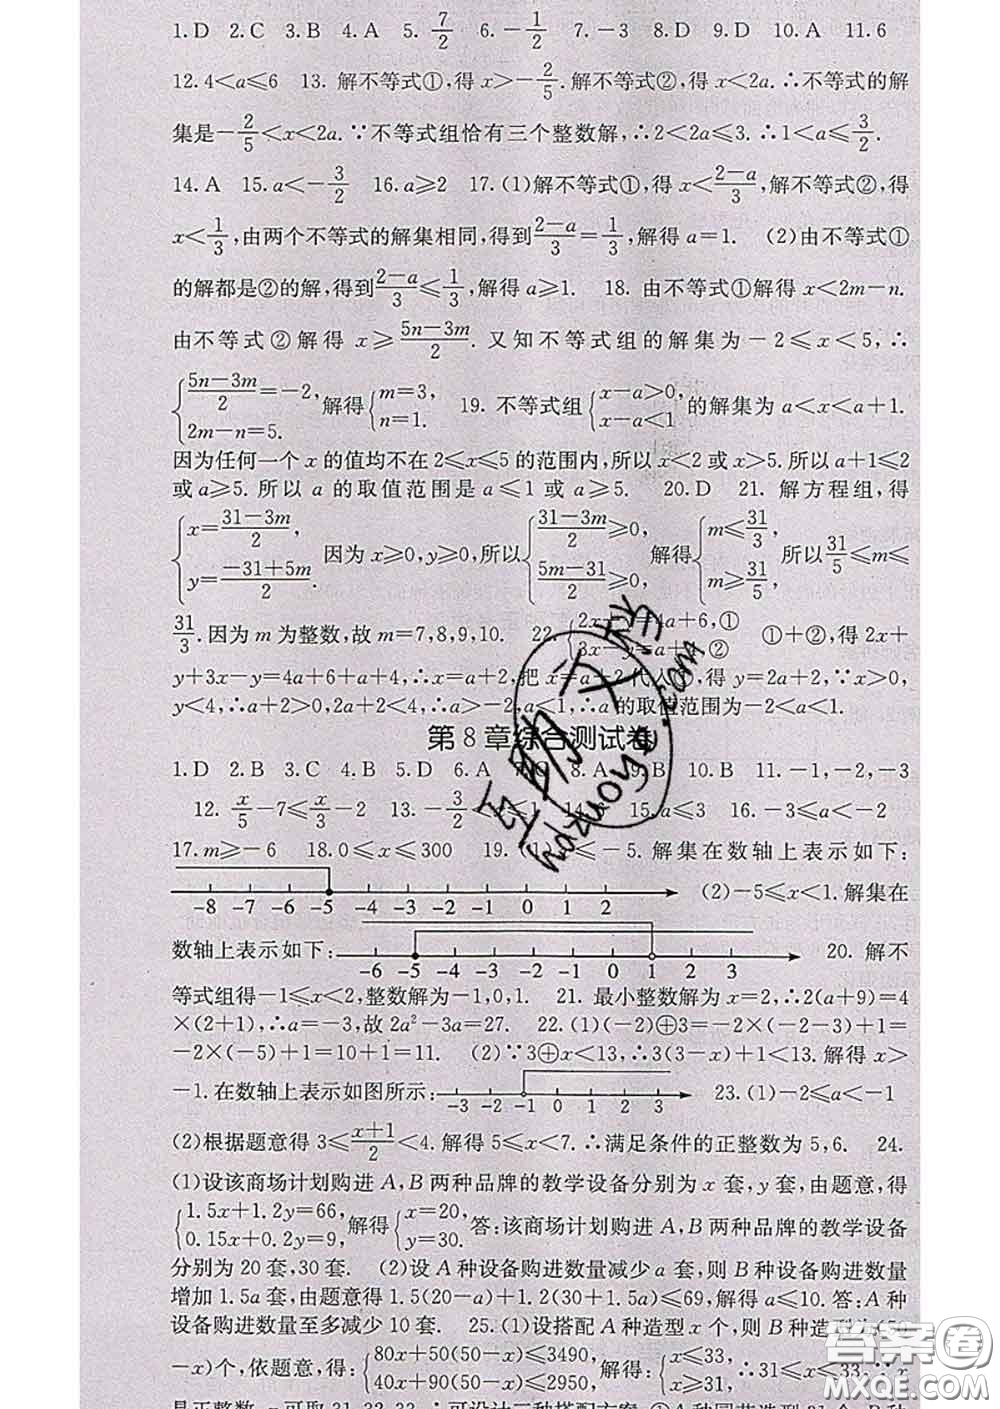 1.D 2.C 3.B 4.A 5. 7/2 6.-1/2 7.-3 8.D 9.D 10.A 11.6
12.4<a≤6 13. 解不等式①,得 x>-2/5.解不等式②,得 x<2a.∴不等式的解
集是-2/5<x<2a.∵不等式组恰有三个整数解,∴2<2a≤3.∴1<a≤3/2.
14.A 15.a<-3/2 16.a≥2 17.(1)解不等式①,得 x<(2-a)/3,解不等式②,得
x<1/3,由两个不等式的解集相同,得到(2-a)/3=1/3,解得 a=1. (2)由不等式①
的解都是②的解,得到(2-a)/3≤1/3,解得 a≥1. 18. 由不等式①解得 x<2m-n.
由不等式②解得 x≥(5n-3m)/2. 又知不等式组的解集为-2≤x<5,∴
{(5n-3m)/2=-2, 2m-n=5. 解得{m=3, n=1. 19. 不等式组{x-a>0, x-a<1 的解集为 a<x<a+1.
因为任何一个 x 的值均不在 2≤x≤5 的范围内,所以 x<2 或 x>5.所以 a+1≤2
或 a≥5. 所以 a 的取值范围是 a≤1 或 a≥5. 20.D 21. 解方程组,得
{x=(31-3m)/2, y=(-31+5m)/2. 因为 x≥0,y≥0,所以{(31-3m)/2≥0, (5m-31)/2≥0, 解得{m≤31/3, m≥31/5, 所以31/5≤m≤
31/3.因为 m 为整数,故 m=7,8,9,10. 22. ①+②,得 2x+
y+3x-y=4a+6+a+4,∴x=a+2,把 x=a+2 代入①,得 y=2a+2,∵x>0,
y<4,∴a+2>0,2a+2<4,∴a>-2,a<1,∴a 的取值范围为-2<a<1.
第 8 章综合测试卷
1.D 2.B 3.C 4.B 5.D 6.A 8.A 9.B 10.B 11.-1,-2,-3
12. x/5-7≤x/3-2 13. 15.a≤4 16.-3≤a<-2
17.m≥-6 18.0≤x≤300 19. ≤-5.解集在数轴上表示如下:
-8 -7 -6 -5 -4 -3 -2 -1 0 1 2 (2)-5≤x<1.解集在
数轴上表示如下: -6 -5 -4 -3 -2 -1 0 1 2 3 20. 解不
等式组得-1≤x<2,整数解为-1,0,1. 21. 最小整数解为 x=2,∴2(a+9)=4
×(2+1),∴a=-3,故 2a²-3a=27. 22.(1)(-2)⊕3=-2×(-2-3)+1=
-2×(-5)+1=10+1=11. (2)∵3⊕x<13,∴3(3-x)+1<13.解得 x>
-1.在数轴上表示如图所示: -3 -2 -1 0 1 2 3 23.(1)-2≤a<-1
(2)根据题意得 3≤(x+1)/2<4.解得 5≤x<7.∴满足条件的正整数为 5,6. 24.
(1)设该商场计划购进 A,B 两种品牌的教学设备分别为 x 套,y 套,由题意,得
{1.5x+1.2y=66, 0.15x+0.2y=9, 解得{x=20, y=30. 答:该商场计划购进 A,B 两种品牌的教学设备
分别为 20 套,30 套. (2)设 A 种设备购进数量减少 a 套,则 B 种设备购进数量
增加 1.5a 套,由题意得 1.5(20-a)+1.2(30+1.5a)≤69,解得 a≤10.答:A 种
设备购进数量至多减少 10 套. 25.(1)设搭配 A 种造型 x 个,则 B 种造型为(50
-x)个,依题意,得:{80x+50(50-x)≤3490, 40x+90(50-x)≤2950, 解得:{x≤33, x≥31, ∴31≤x≤33.∵x
是正整数,x 可取 31,32,33.∴可设计三种搭配方案
答案圈
MXQE.COM